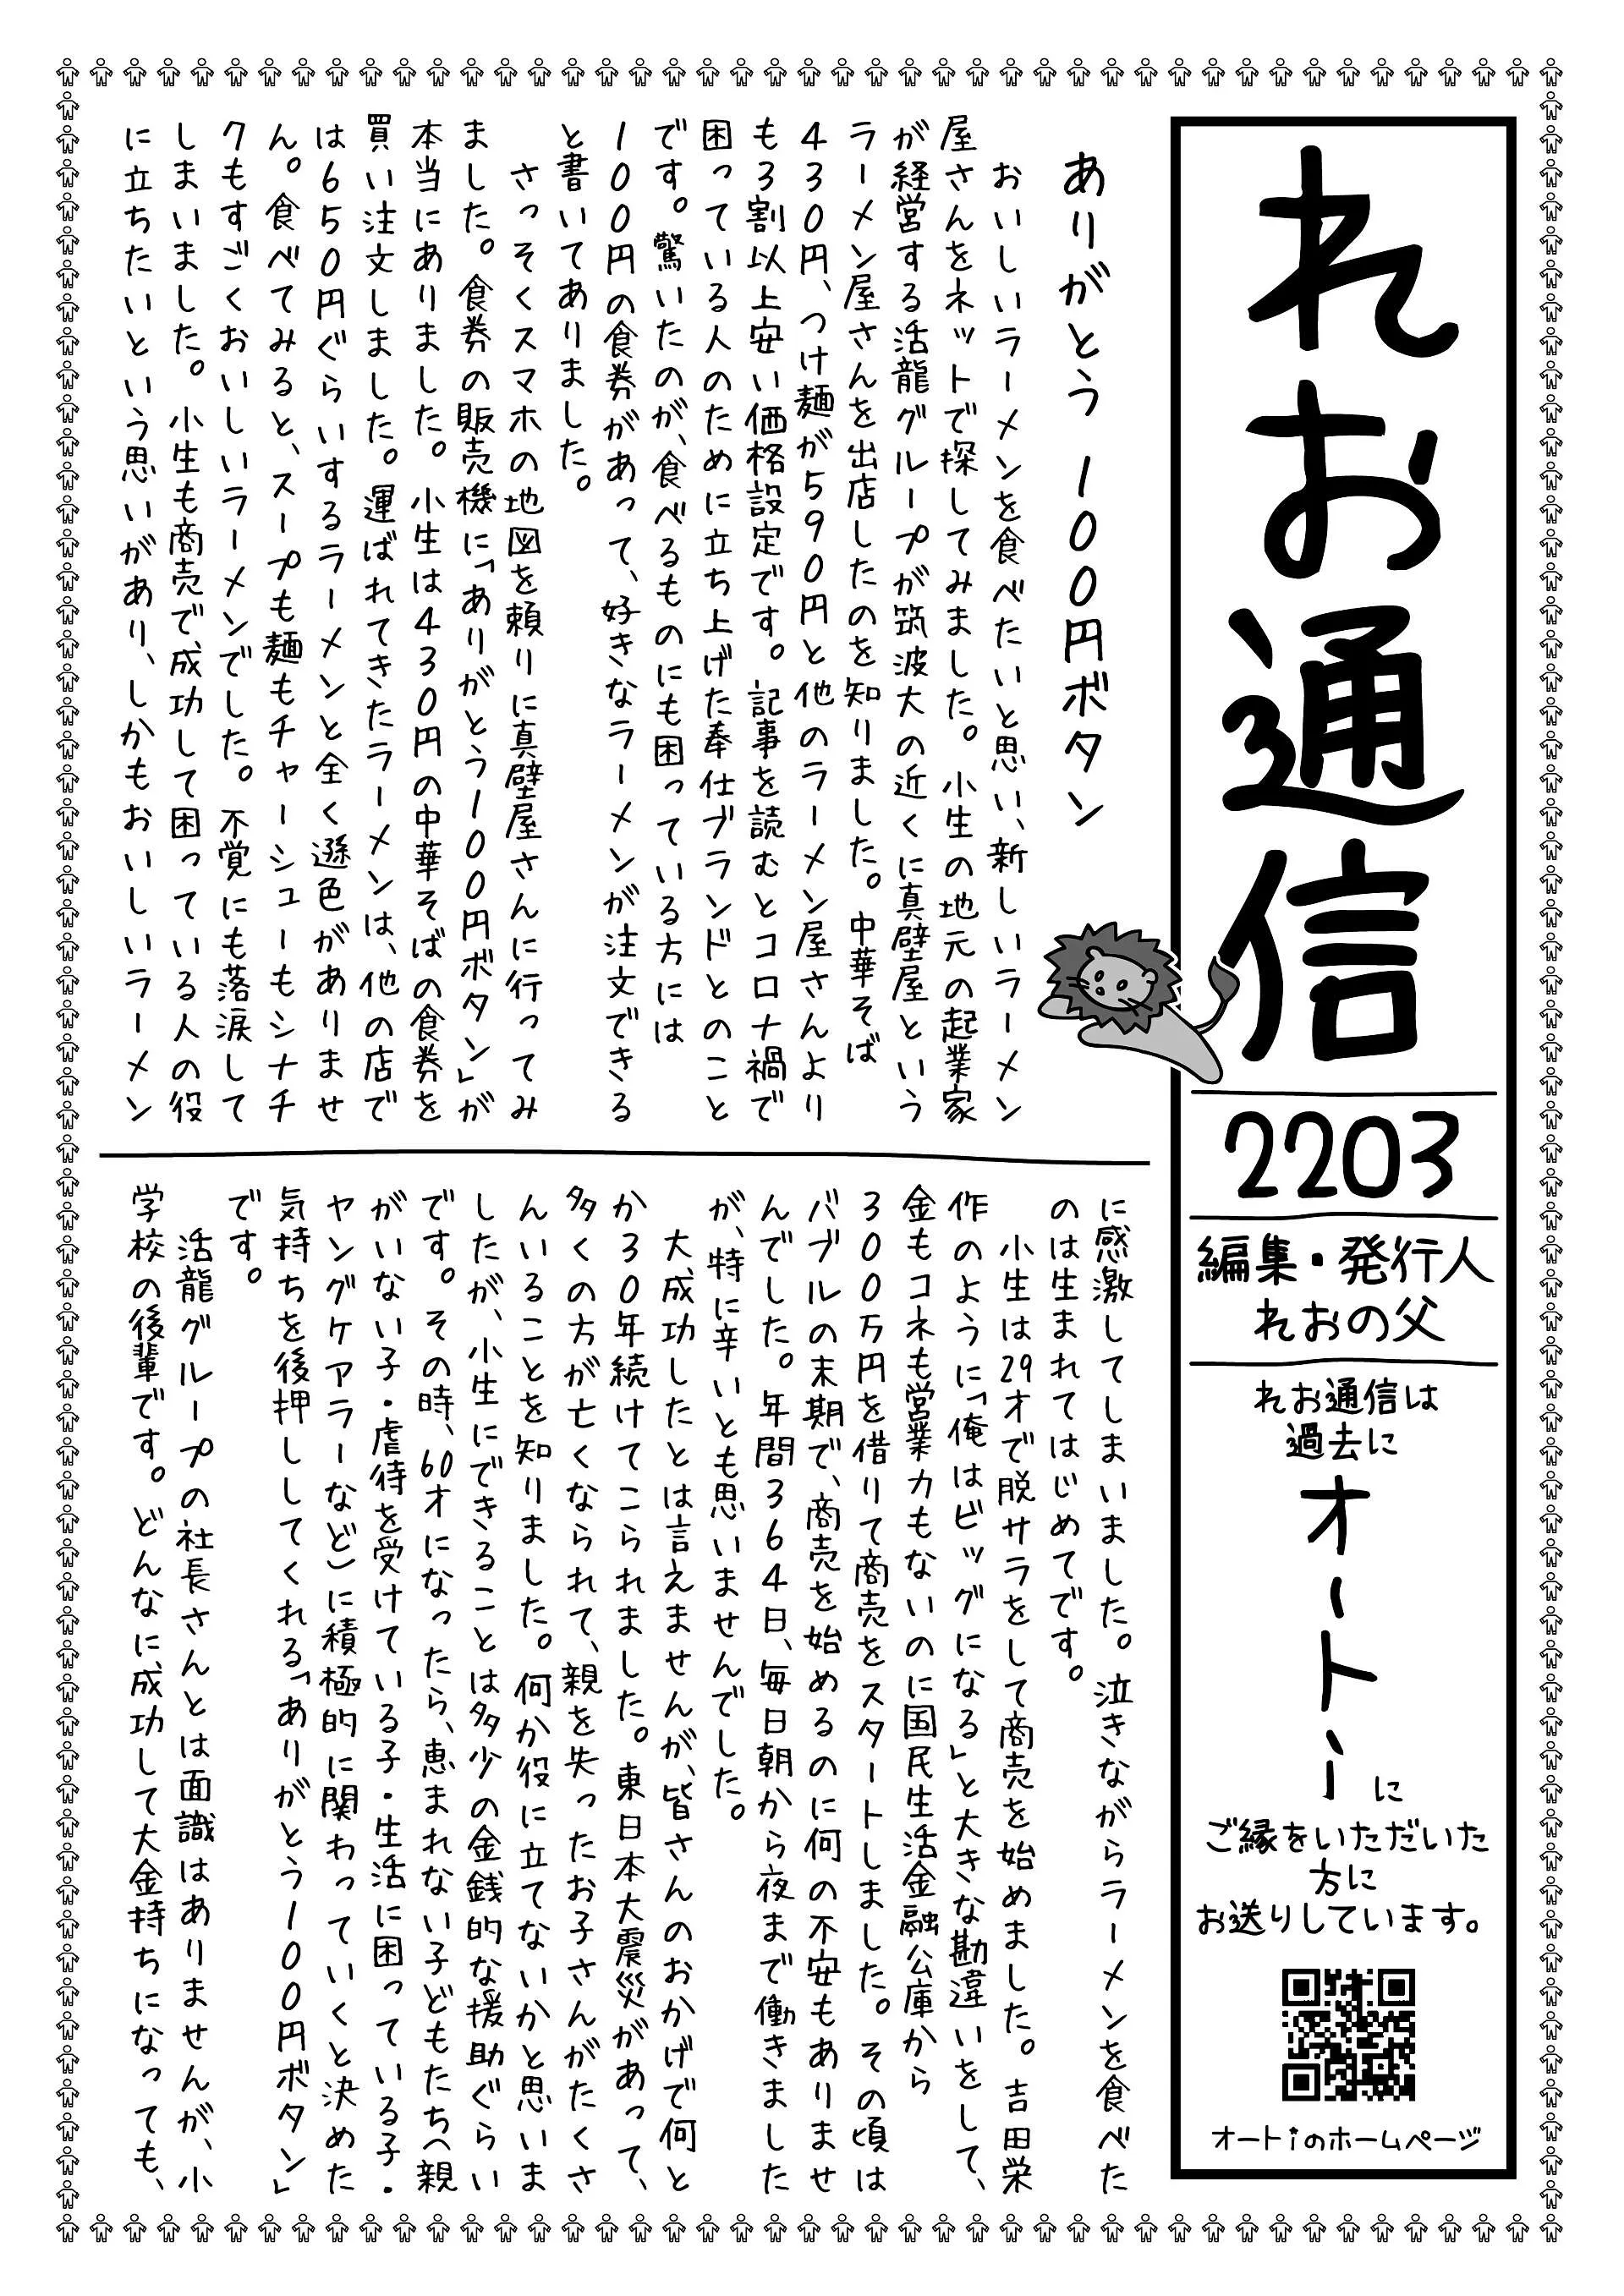 れお通信
2203
編集・発行人
れおの父
れお通信は
過去に
オートi に
ご縁をいただいた
方に
お送りしています。
オートiのホームページ
ありがとう 100円ボタン
おいしいラーメンを食べたいと思い、新しいラーメン
屋さんをネットで探してみました。小生の地元の起業家
が経営する活龍グループが筑波大の近くに真壁屋という
ラーメン屋さんを出店したのを知りました。中華そば
430円、つけ麺が590円と他のラーメン屋さんより
も3割以上安い価格設定です。記事を読むとコロナ禍で
困っている人のために立ち上げた奉仕ブランドとのこと
です。驚いたのが、食べるものにも困っている方には
100円の食券があって、好きなラーメンが注文できる
と書いてありました。
さっそくスマホの地図を頼りに真壁屋さんに行ってみ
ました。食券の販売機に「ありがとう100円ボタン」が
本当にありました。小生は430円の中華そばの食券を
買い注文しました。運ばれてきたラーメンは、他の店で
は650円ぐらいするラーメンと全く遜色がありませ
ん。食べてみると、スープも麺もチャーシューもシナチ
クもすごくおいしいラーメンでした。不覚にも落涙して
しまいました。小生も商売で、成功して困っている人の役
に立ちたいという思いがあり、しかもおいしいラーメン
に感激してしまいました。泣きながらラーメンを食べた
のは生まれてはじめてです。
小生は29才で脱サラをして商売を始めました。吉田栄
作のように「俺はビッグになる」と大きな勘違いをして、
金もコネも営業力もないのに国民生活金融公庫から
300万円を借りて商売をスタートしました。その頃は
バブルの末期で、商売を始めるのに何の不安もありませ
んでした。年間364日、毎日朝から夜まで働きました
が、特に辛いとも思いませんでした。
大成功したとは言えませんが、皆さんのおかげで何と
か30年続けてこられました。東日本大震災があって、
多くの方が亡くなられて、親を失ったお子さんがたくさ
んいることを知りました。何か役に立てないかと思いま
したが、小生にできることは多少の金銭的な援助ぐらい
です。その時、60才になったら、恵まれない子どもたち(親
がいない子・虐待を受けている子・生活に困っている子・
ヤングケアラーなど)に積極的に関わっていくと決めた
気持ちを後押ししてくれる「ありがとう100円ボタン」
です。
活龍グループの社長さんとは面識はありませんが、小
学校の後輩です。どんなに成功して大金持ちになっても、